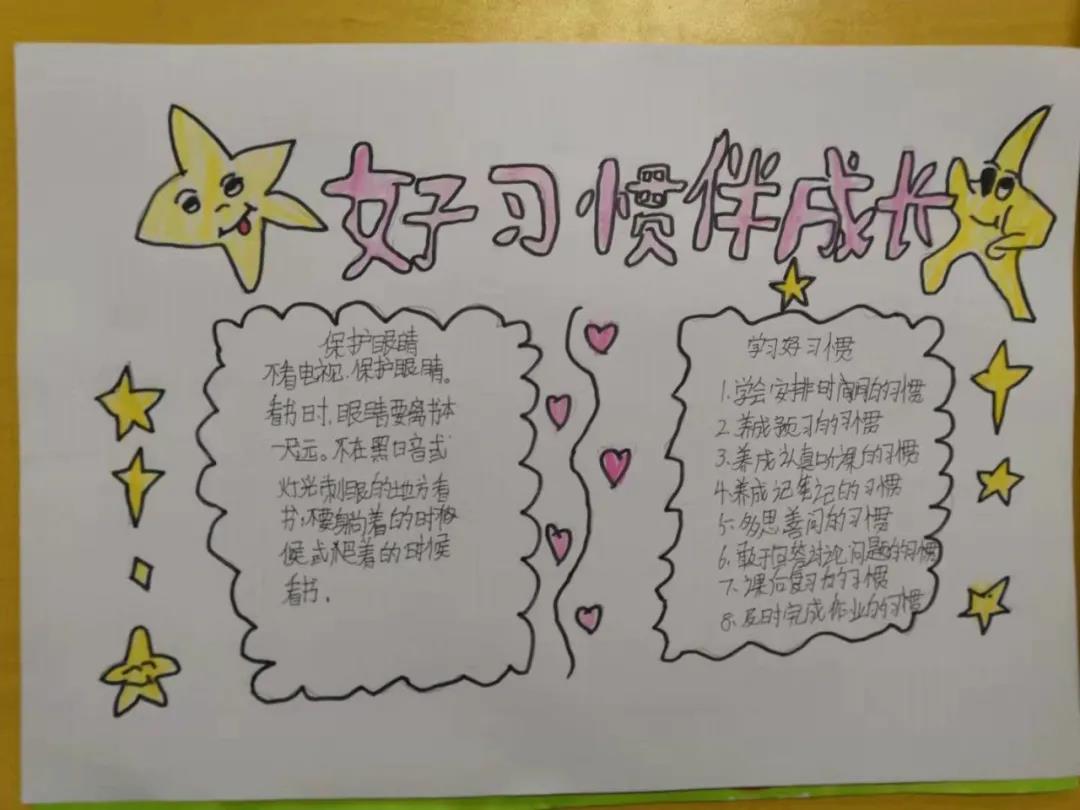 好习惯伴成长
保护眼睛
不看电视、保护眼睛。
看书时,眼睛要离书本
一尺远。不在黑日音或
灯光刺眼的地方看
书,不要躺着的时候
候或爬着的时候
看书.
学习好习惯
1.学会安排时间的习惯
2.养成预习的习惯
3.养成认真听课的习惯
4.养成记笔记的习惯
5.多思善问的习惯
6.敢于回答讨论问题的习惯
7.课后复习的习惯
8.及时完成作业的习惯